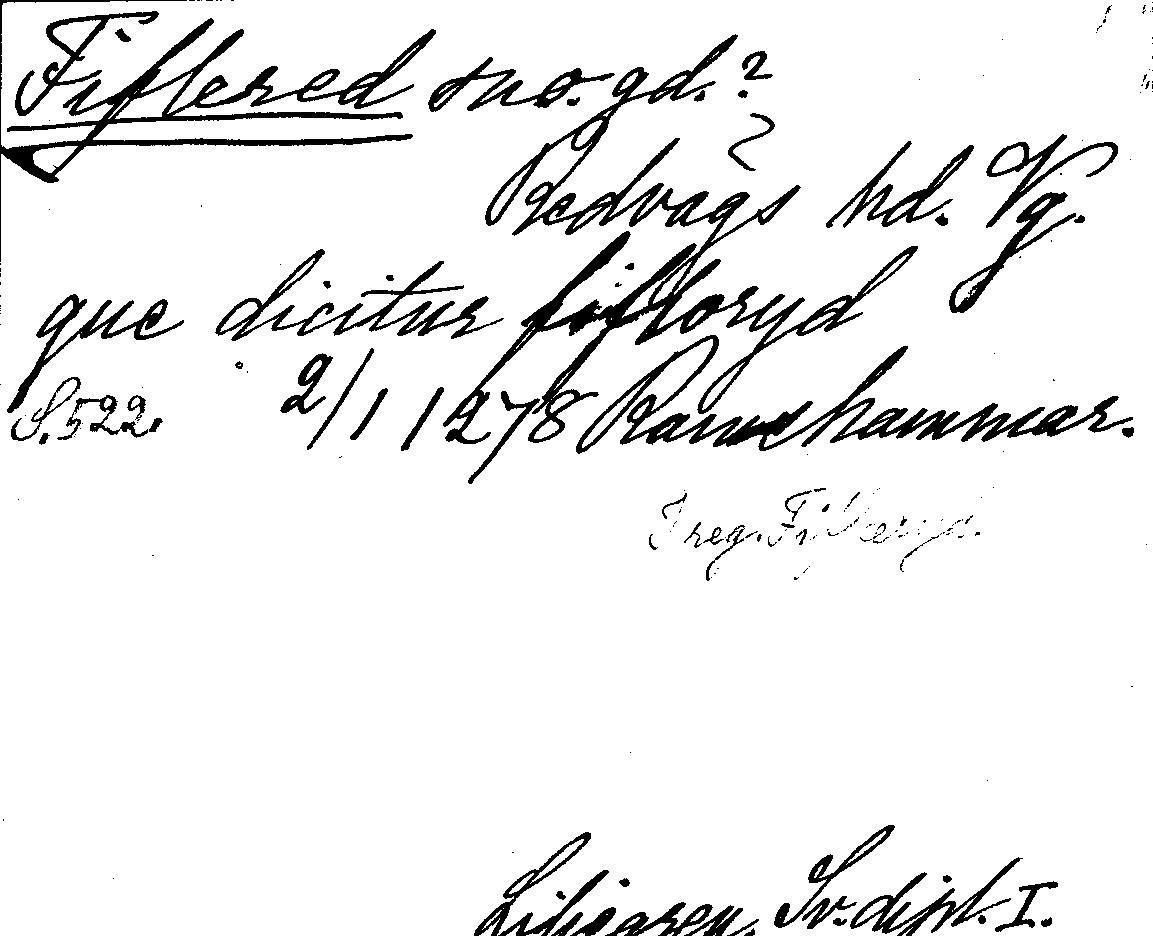 Fiflered sno. gd.?
?
Redvägs hd. Vg.
que dicitur fifloryd
S. 522. 2/1 1278 Ramshammar.
I reg. Fifleryd.
Liliegren, Sv. dipl. I.